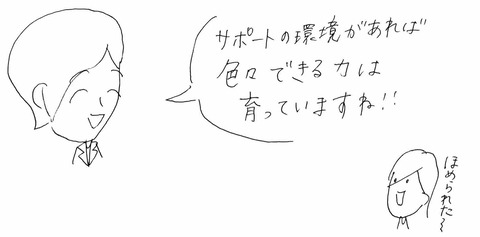 サポートの環境があれば
色々できる力は
育っていますね!!
ほめられた〜